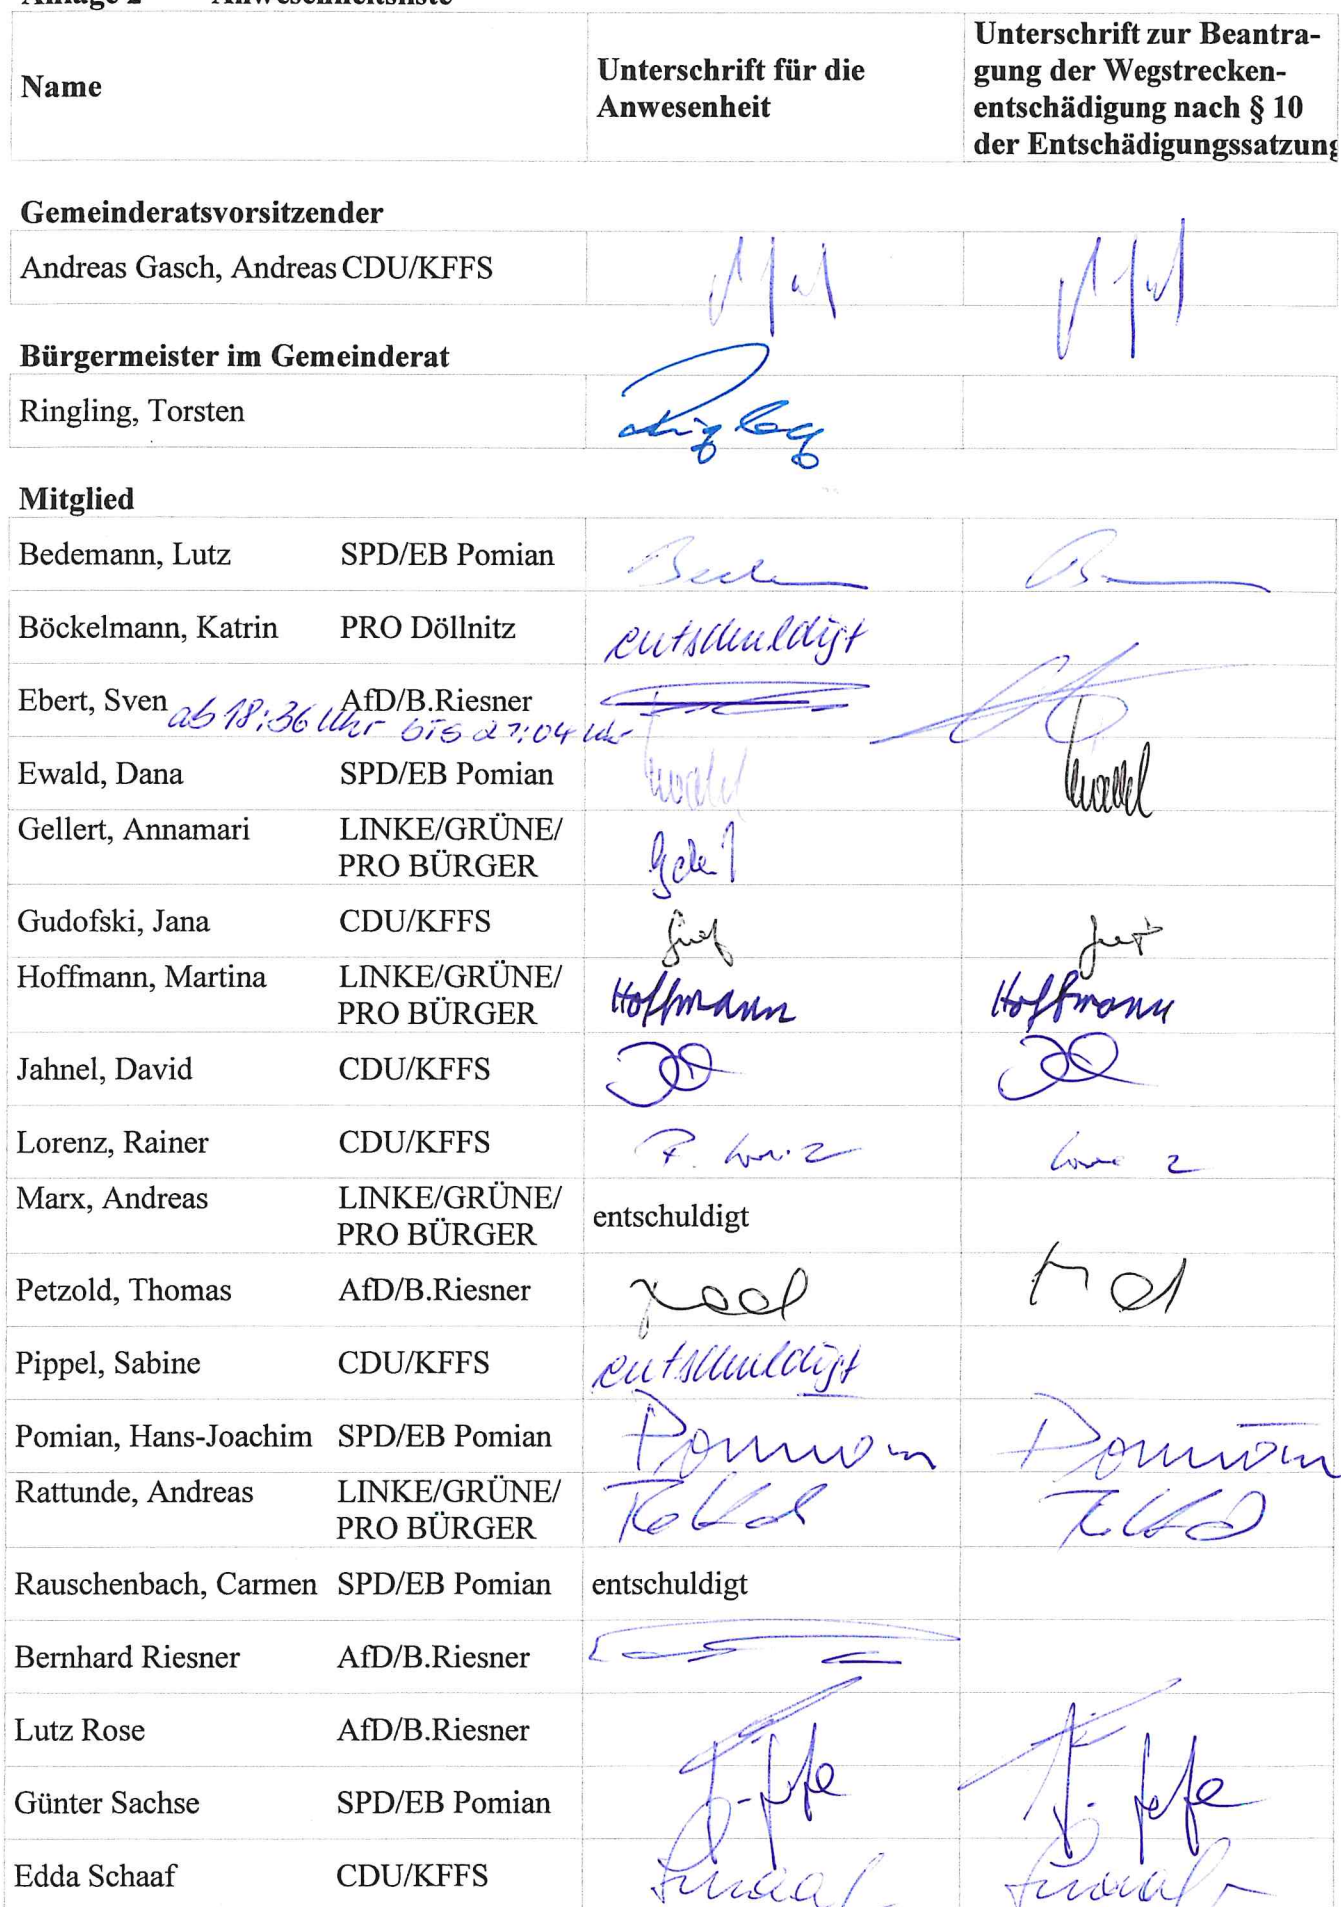 Anlage 2 Anwesenheitsliste
Name
Unterschrift für die
Anwesenheit
Unterschrift zur Beantra-
gung der Wegstrecken-
entschädigung nach § 10
der Entschädigungssatzung
Gemeinderatsvorsitzender
Andreas Gasch, Andreas CDU/KFFS
Bürgermeister im Gemeinderat
Ringling, Torsten
Mitglied
Bedemann, Lutz SPD/EB Pomian
Böckelmann, Katrin PRO Döllnitz entschuldigt
Ebert, Sven AfD/B.Riesner
ab 18:36 Uhr bis 21:04 Uhr
Ewald, Dana SPD/EB Pomian
Gellert, Annamari LINKE/GRÜNE/
PRO BÜRGER
Gudofski, Jana CDU/KFFS
Hoffmann, Martina LINKE/GRÜNE/
PRO BÜRGER Hoffmann Hoffmann
Jahnel, David CDU/KFFS
Lorenz, Rainer CDU/KFFS
Marx, Andreas LINKE/GRÜNE/
PRO BÜRGER entschuldigt
Petzold, Thomas AfD/B.Riesner
Pippel, Sabine CDU/KFFS entschuldigt
Pomian, Hans-Joachim SPD/EB Pomian Pomian Pomian
Rattunde, Andreas LINKE/GRÜNE/
PRO BÜRGER
Rauschenbach, Carmen SPD/EB Pomian entschuldigt
Bernhard Riesner AfD/B.Riesner
Lutz Rose AfD/B.Riesner
Günter Sachse SPD/EB Pomian
Edda Schaaf CDU/KFFS